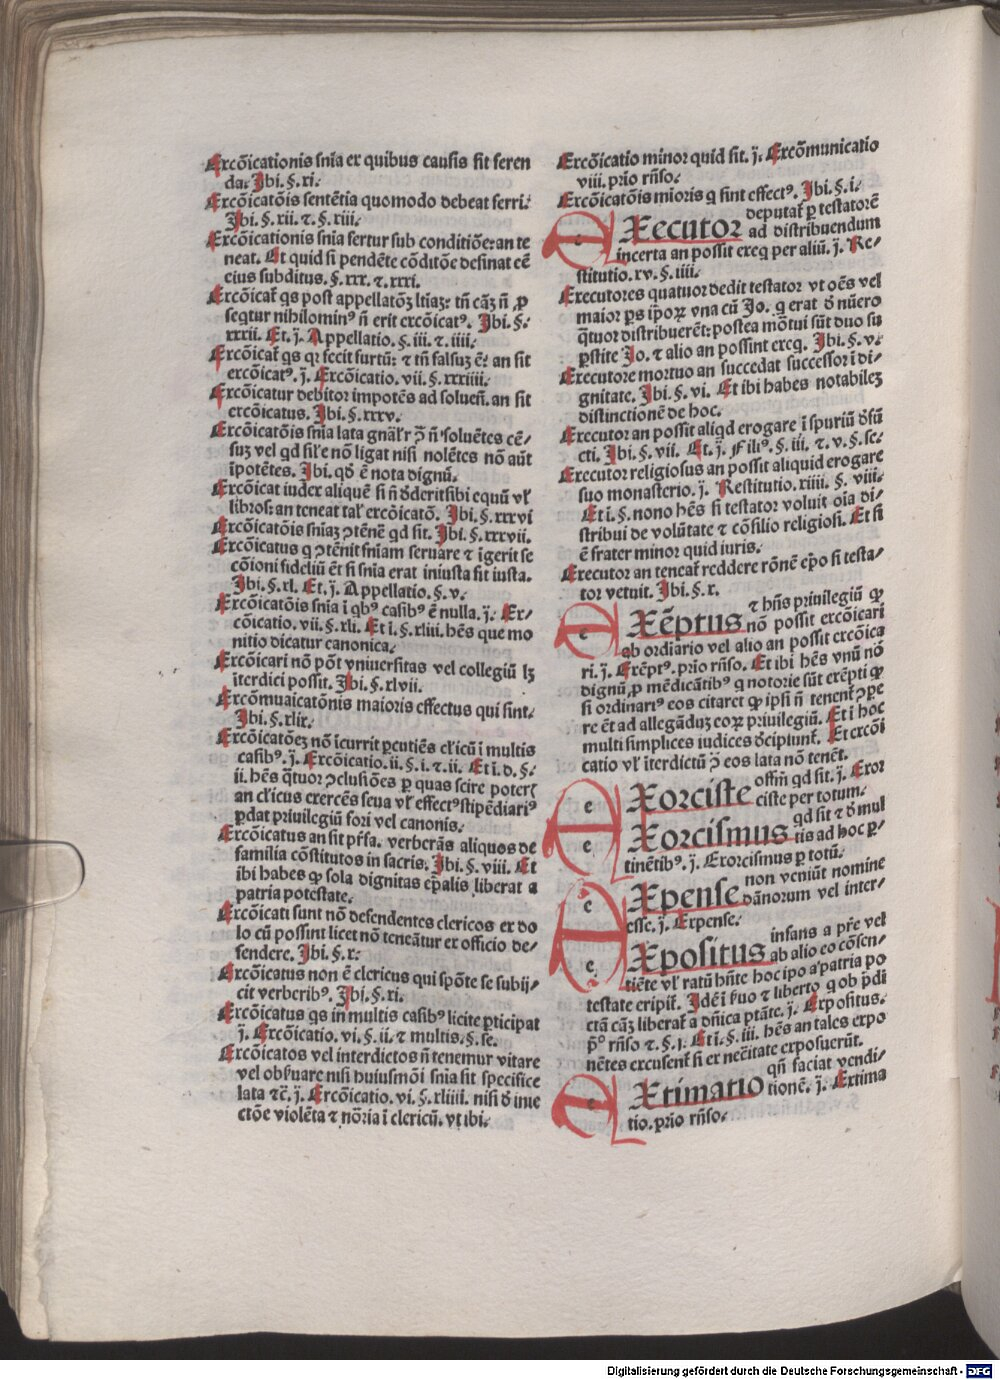 Excōicationis snīa ex quibus causis sit feren
da. Ibi. §. xi.
Excōicatōis sentētia quomodo debeat ferri.
Ibi. §. xii. ⁊. §. xiii.
Excōicationis snīa fertur sub conditiōe: an te
neat. Et quid si pendēte cōditōe desinat eē
eius subditus. §. xxx. ⁊. xxxi.
Excōicat̄ qs post appellatōꝫ
seqtur nihilominꝰ ñ erit excōicatꝰ. Ibi. §.
xxxii. Et. j. Appellatio. §. iii. ⁊. iiii.
Excōicat̄ qs qꝛ fecit furtū: ⁊ tñ falsuꝫ ē: an sit
excōicatꝰ. j. Excōicatio. vii. §. xxxiiii.
Excōicatur debitor impotēs ad soluen̄. an sit
excōicatus. Ibi. §. xxxv.
Excōicatōis snīa lata gnāl'r ↄ̄ ñ soluētes cē/
suꝫ vel qd sil'e nō ligat nisi nolētes nō aūt
īpotētes. Ibi. qđ ē nota dignū.
Excōicat iudex aliquē si ñ đderitsibi equū vl'
libros: an teneat tal' excōicatō. Ibi. §. xxxvi
Excōicatōis snīaꝫ ↄtēnē qd sit. Ibi. §. xxxvii.
Excōicatus q ↄtēnit snīam seruare ⁊ īgerit se
cōioni fideliū ēt si snīa erat iniusta fit iusta.
Ibi. §. xl. Et. j. Appellatio. §. v.
Excōicatōis snīa ī qbꝰ casibꝰ ē nulla. j. Ex/
cōicatio. vii. §. xli. Et ī. §. xliii. hēs que mo
nitio dicatur canonica.
Excōicari nō pōt vniuersitas vel collegiū lꝫ
īterdici possit. Ibi. §. xlvii.
Excōmuaicatōnis maioris effectus qui sint.
Ibi. §. xlix.
Excōicatōeꝫ nō īcurrit ꝑcutiēs cl'icū ī multis
casibꝰ. j. Excōicatio. ii. §. i. ⁊. ii. Et ī. đ. §.
ii. hēs q̄tuor ↄclusiōes ꝑ quas scire poterꝭ
an cl'icus exercēs seua vl' effectꝰ stipēdiariꝰ
ꝑdat priuilegiū fori vel canonis.
Excōicatus an sit pr̄fa. verberās aliquos de
familia cōstitutos in sacris. Ibi. §. viii. Et
ibi habes ꝙ sola dignitas ep̄alis liberat a
patria potestate.
Excōicati sunt nō defendentes clericos ex do
lo cū possint licet nō teneātur ex officio de/
fendere. Ibi. §. x.
Excōicatus non ē clericus qui spōte se subij/
cit verberibꝰ. Ibi. §. xi.
Excōicatus qs in multis casibꝰ licite ꝑticipat
j. Excōicatio. vi. §. ii. ⁊ multis. §. se.
Excōicatos vel interdictos ñ tenemur vitare
vel obſuare nisi huiusmōi snīa sit specifice
lata ⁊c̄. j. Excōicatio. vi. §. xliiii. nisi đ inie
ctōe violēta ⁊ nōꝛia ī clericū. vt ibi.
Excōicatio minor quid sit. j. Excōmunicatio
viii. ꝑrio rñso.
Excōicatōis mioris q sint effectꝰ. Ibi. §. i.
e
EXecutor deputat̄ ꝑ testatorē
ad distribuendum
incerta an possit exeq per aliū. j. Re/
stitutio. xv. §. iiii.
Executores quatuor dedit testator vt oēs vel
maior ꝑs ip̄oꝝ vna cū Jo. q erat đ nūero
q̄tuor distribuerēt: postea mōtui sūt duo su
ꝑstite Jo. ⁊ alio an possint exeq. Ibi. §. v.
Executore mortuo an succedat successor ī di/
gnitate. Ibi. §. vi. Et ibi habes notabileꝫ
distinctionē de hoc.
Executor an possit aliqd erogare ī spuriū đfū
cti. Ibi. §. vii. Et. j. Filiꝰ. §. iii. ⁊. v. §. se.
Executor religiosus an possit aliquid erogare
suo monasterio. j. Restitutio. xiiii. §. viii.
Et ī. §. nono hēs si testator voluit oīa di/
stribui de volūtate ⁊ cōsilio religiosi. Et si
ē frater minor quid iuris.
Executor an teneat̄ reddere rōnē ep̄o si testa/
tor vetuit. Ibi. §. x.
e
EXēptus ⁊ hñs priuilegiū ꝙ
nō possit excōicari
ab ordiario vel alio an possit excōica
ri. j. Exēptꝰ. ꝑrio rñso. Et ibi hēs vnū nō
dignū ꝑ mēdicātibꝰ q notorie sūt exēpti ꝙ
si ordinariꝰ eos citaret ꝙ ip̄i ñ tenent̄ ↄꝑe
re ēt ad allegāduꝫ eoꝝ priuilegiū. Et ī hoc
multi simplices iudices đcipiunt̄. Et excōi
catio vl' īterdictū ↄ̄ eos lata nō tenēt.
e
EXorciste offm̄ qd sit. j. Exor
ciste per totum.
e
EXorcismus qd sit ⁊ đ mul
tis ad hoc ꝑ/
tinētibꝰ. j. Exorcismus ꝑ totū.
e
EXpense non veniūt nomine
dānorum vel inter/
esse. j. Expense.
e
EXpositus infans a pr̄e vel
ab alio eo cōsen/
tiēte vl' ratū hn̄te hoc ip̄o a patria po
testate eripit̄. Idē ī ſuo ⁊ liberto q ob p̄di
ctā cāꝫ liberat̄ a dñica ptāte. j. Expositus.
pº rñso ⁊. §. j. Et ī. §. iii. hēs an tales expo
nētes excusent̄ si ex nec̄itate exposuerūt.
e
EXtimatio qñ faciat vendi/
tionē. j. Extima
tio. ꝑrio rñso.
Digitalisierung gefördert durch die Deutsche Forschungsgemeinschaft - DFG